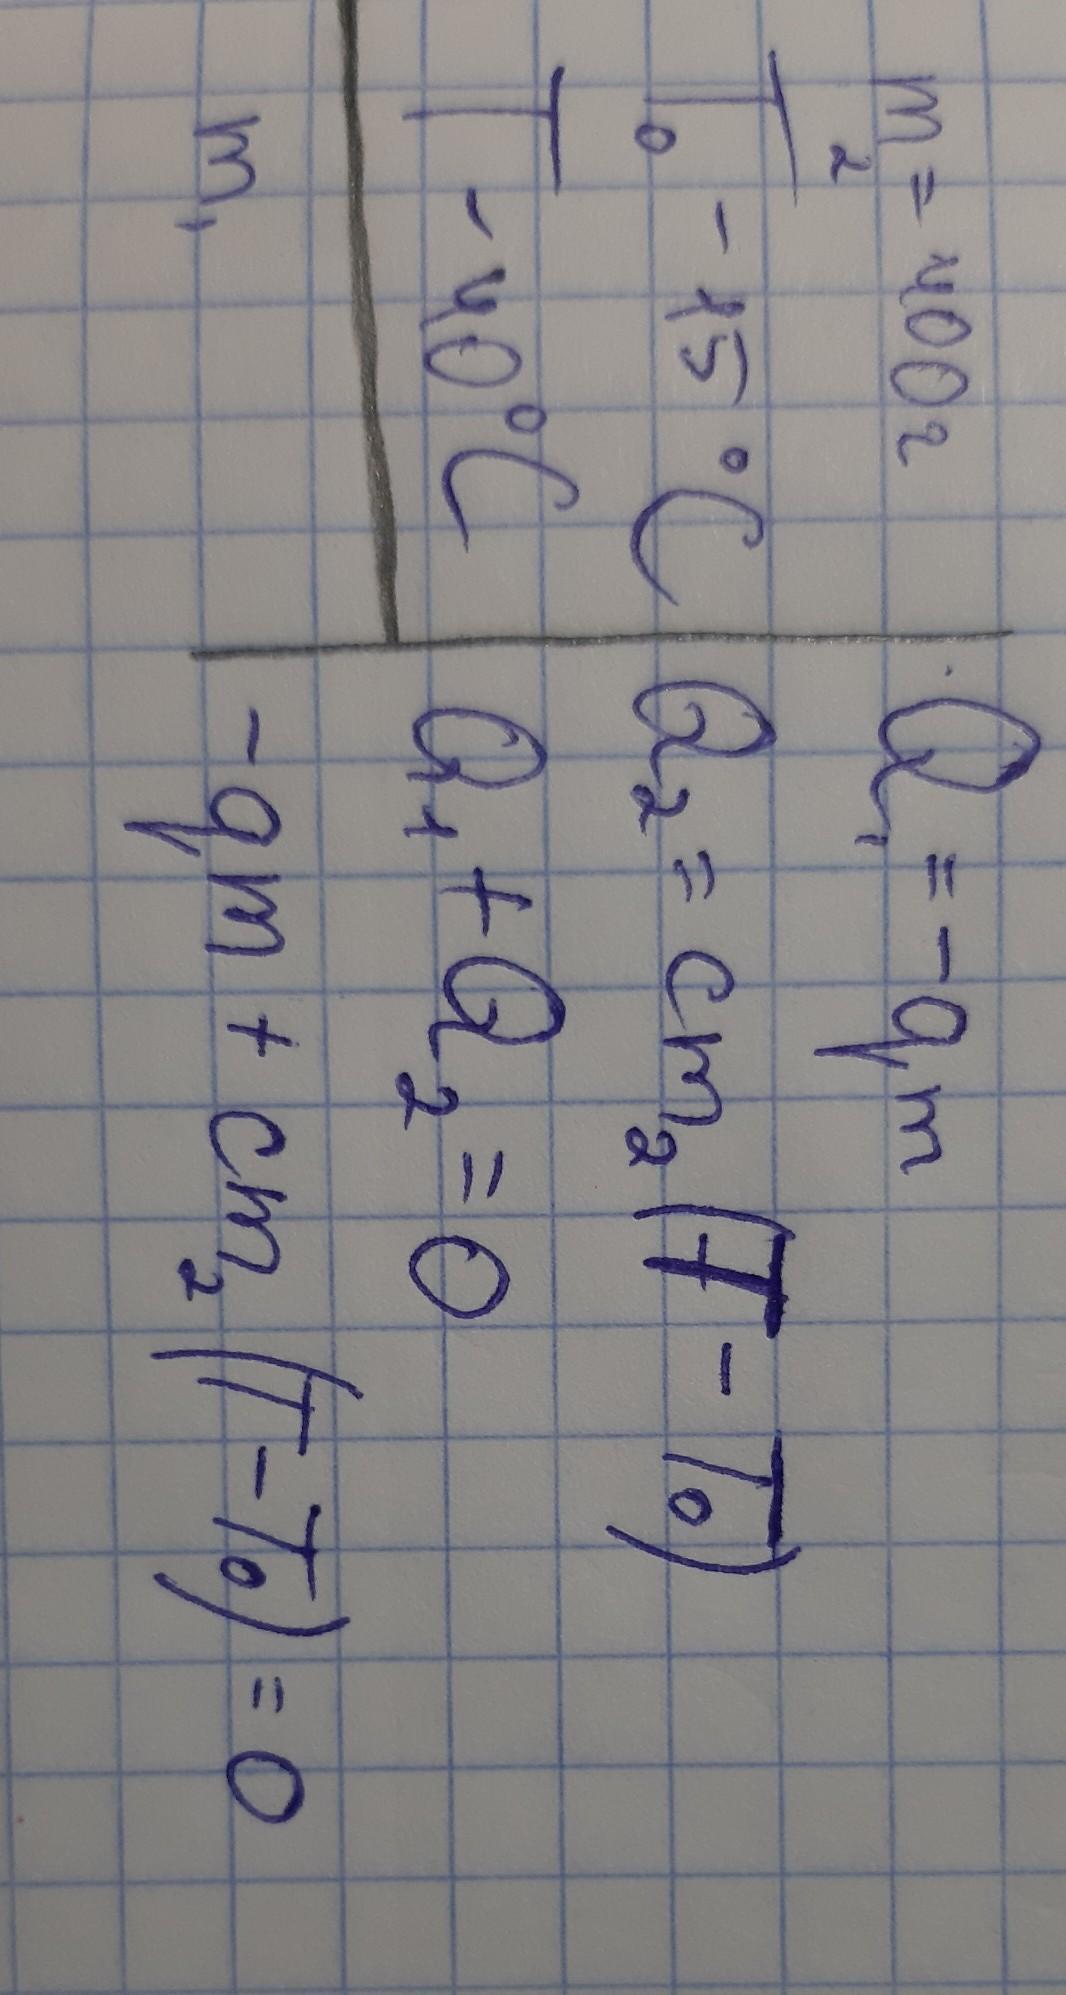 m₂ = 400г
T₀ - 15 °C
T - 40°C
m₁
Q₁ = -qm
Q₂ = cm₂(T - T₀)
Q₁ + Q₂ = 0
-qm + cm₂(T - T₀) = 0